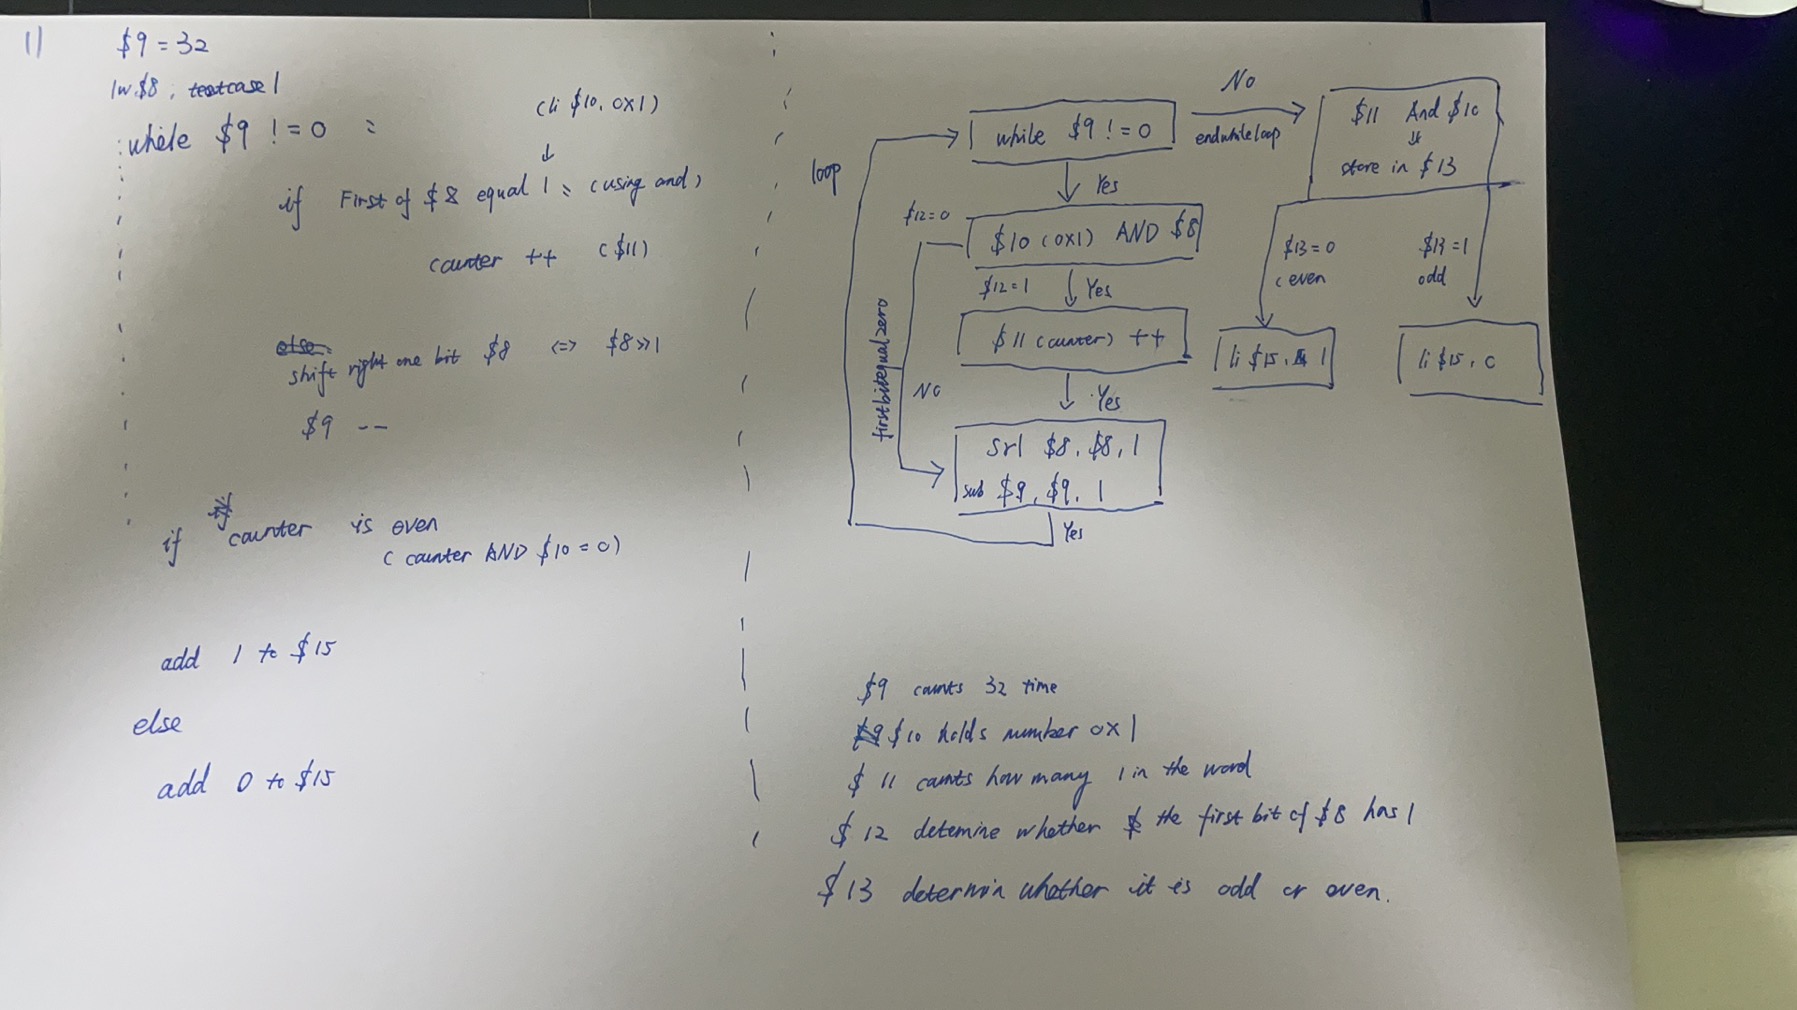 1)
$9 = 32
lw $8, testcase1
while $9 != 0 :
(li $10, 0x1)
↓
if First of $8 equal 1 : (using and)
counter ++ ($11)
else:
shift right one bit $8 <=> $8>>1
$9 --
if counter is even
(counter AND $10 = 0)
add 1 to $15
else
add 0 to $15
loop
while $9 != 0
No
endwhileloop
$11 And $10
store in $13
Yes
$12=0
$10 (0x1) AND $8
$12=1 Yes
$13=0
(even
$13=1
odd
firstbitequalzero
$11 (counter) ++
li $15, 1
li $15, 0
NO
Yes
srl $8, $8, 1
sub $9, $9, 1
Yes
$9 counts 32 time
$10 holds number 0x1
$11 counts how many 1 in the word
$12 detemine whether the first bit of $8 has 1
$13 determin whether it is odd or even.